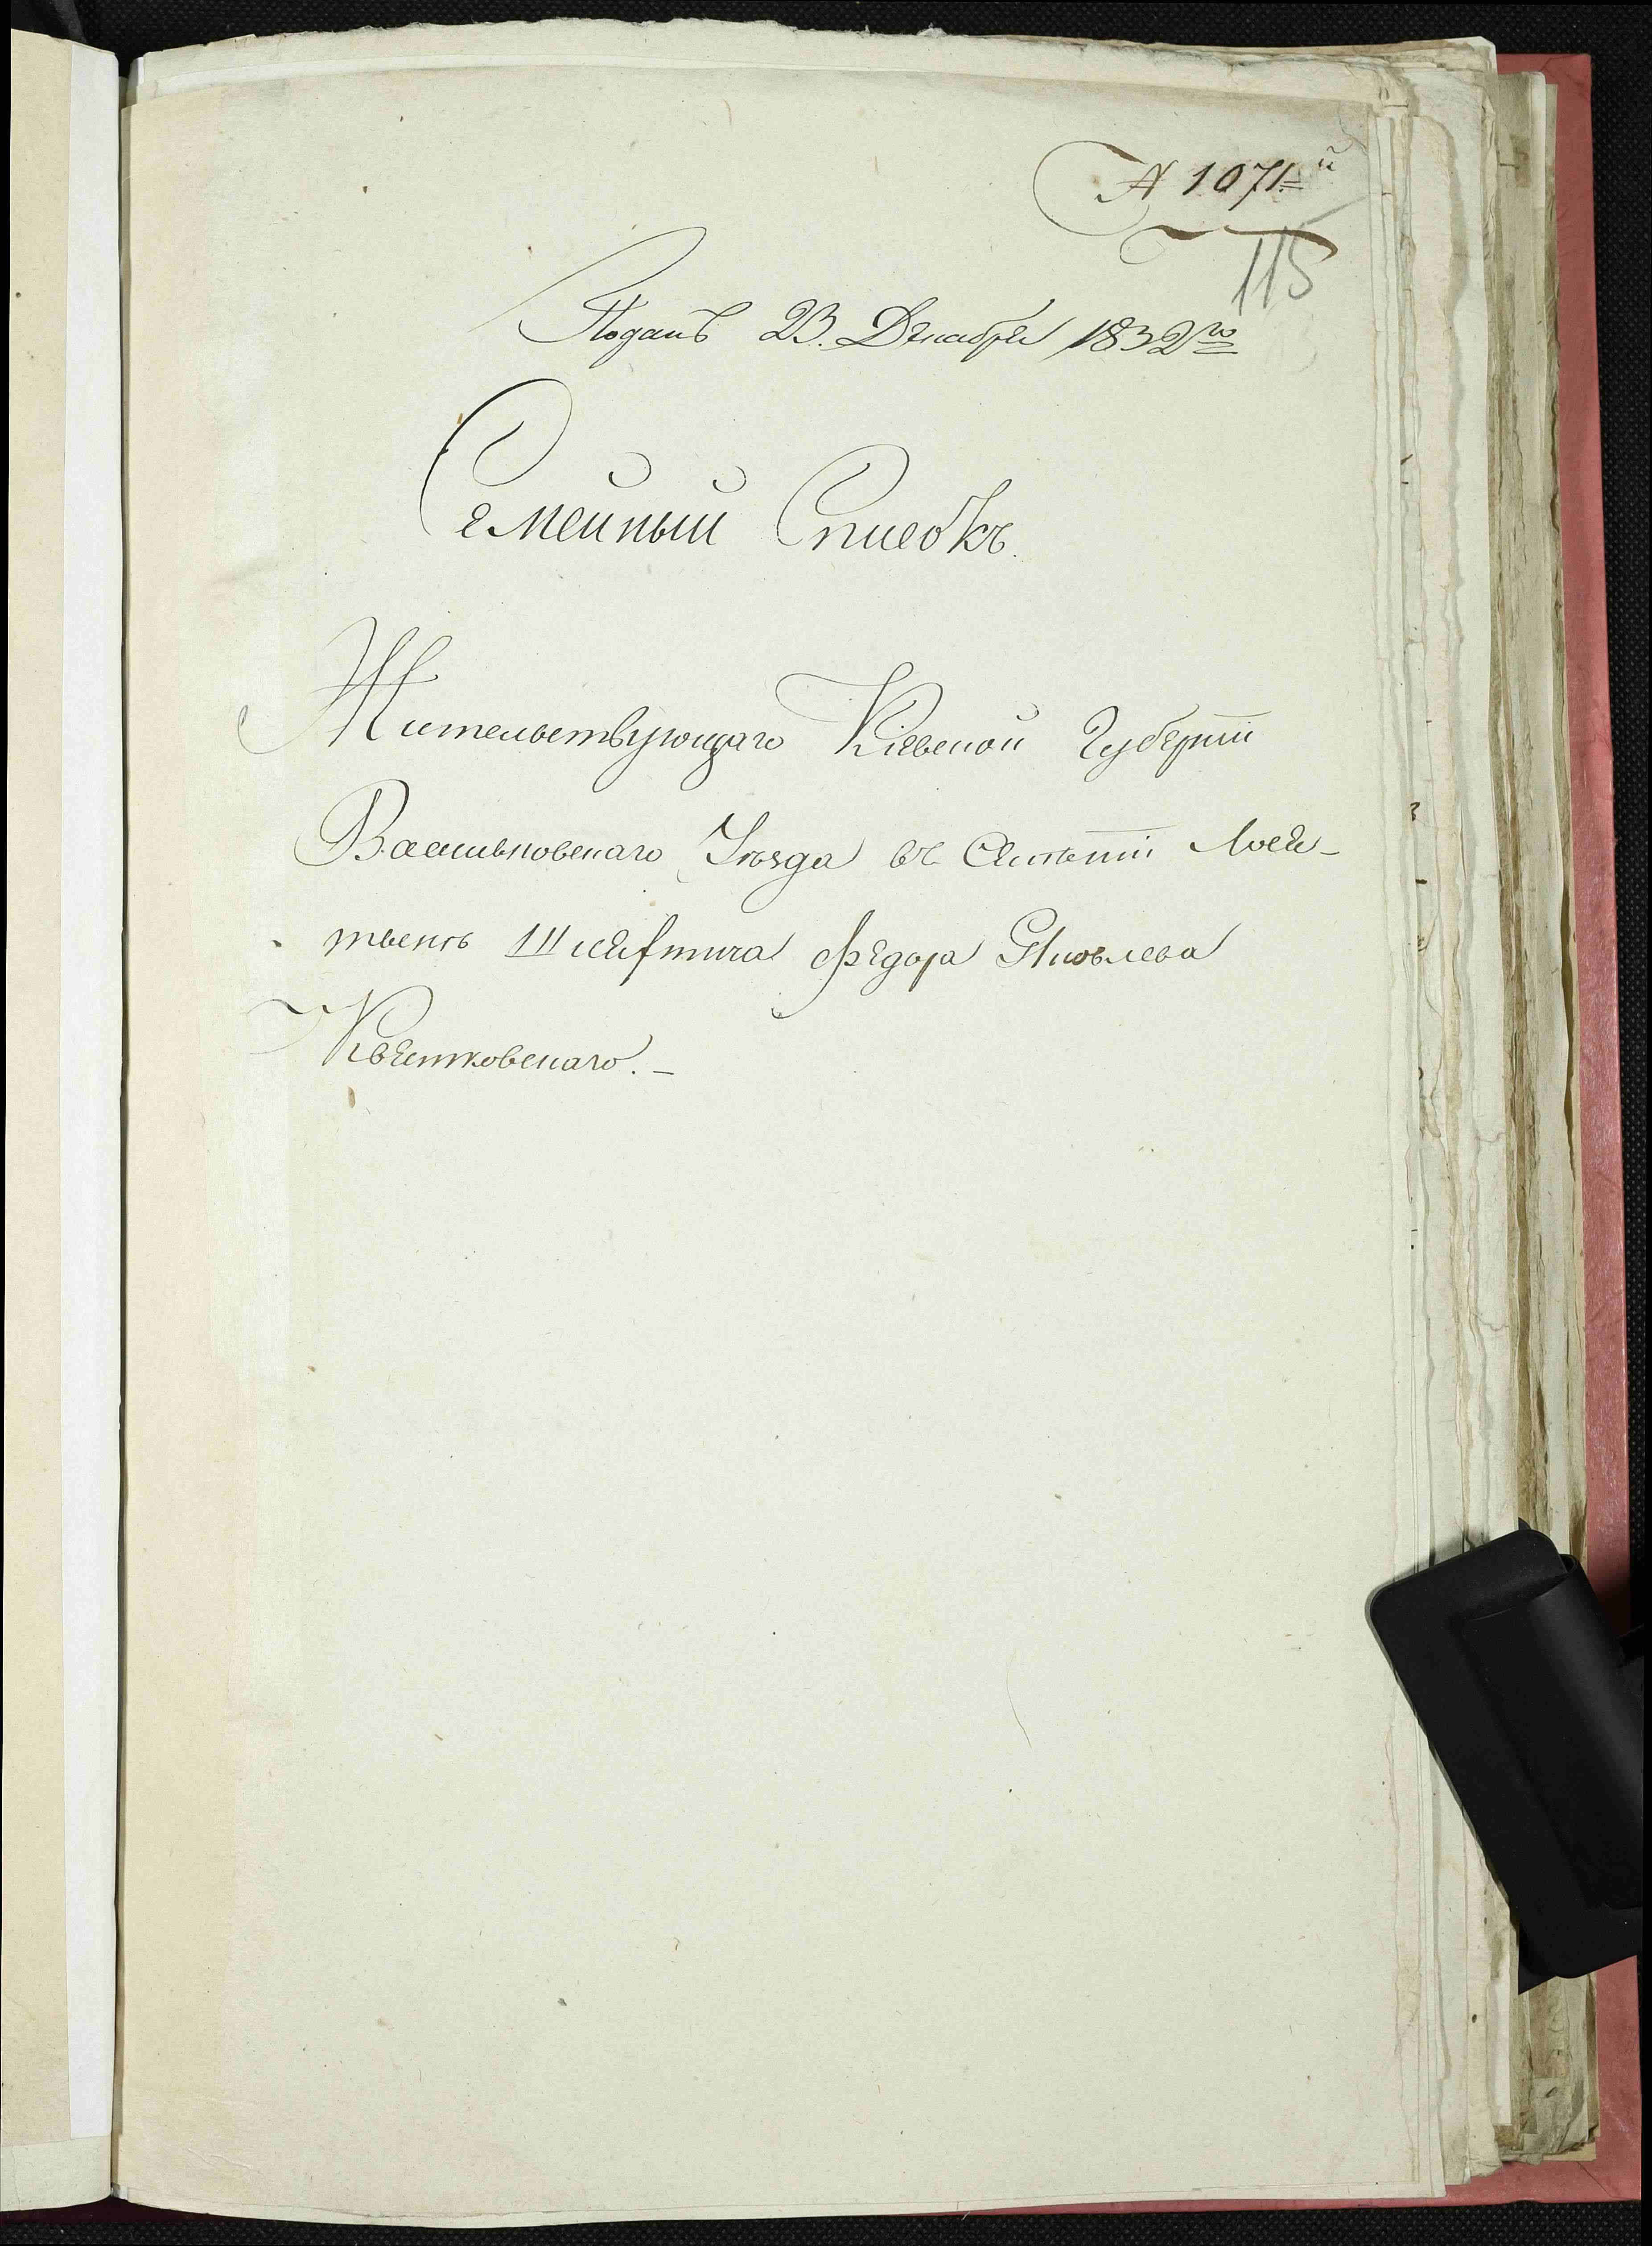 № 1071.й
115
Поданъ 23. Декабря 1832го
Семейный Списокъ.
Жительствующаго Кіевской Губерніи
Васильковскаго Уѣзда въ Имѣніи
Шляхтича Федора Яковлева
Квятковскаго.-